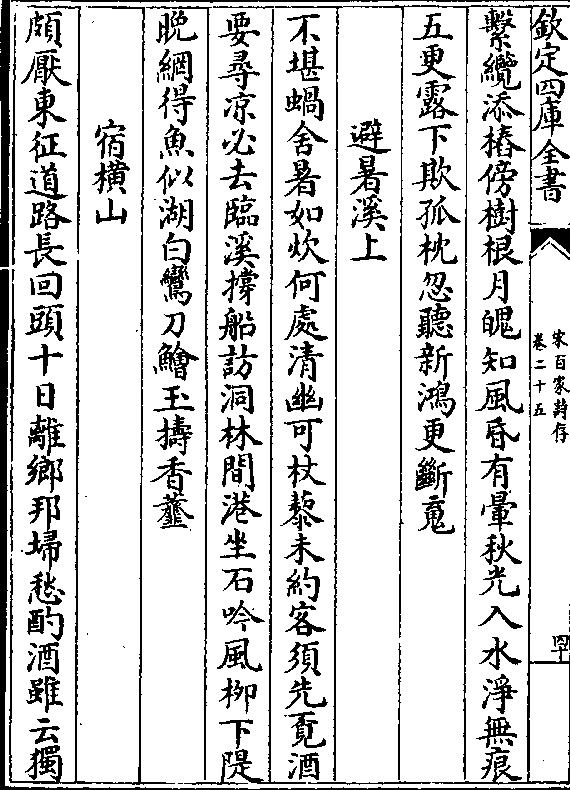 欽定四庫全書
宋百家詩存
卷二十五
罕
繫纜添樁傍樹根月䰟知風昏有暈秋光入水淨無痕
五更露下欺孤枕忽聽新鴻更斷䰟
避暑溪上
不堪蝸舍暑如炊何處清幽可杖藜未約客須先覔酒
要尋凉必去臨溪撐船訪洞林間港坐石吟風柳下隄
晩網得魚似湖白鸞刀鱠玉擣香虀
宿橫山
頗厭東征道路長回頭十日離鄉邦埽愁酌酒雖云獨